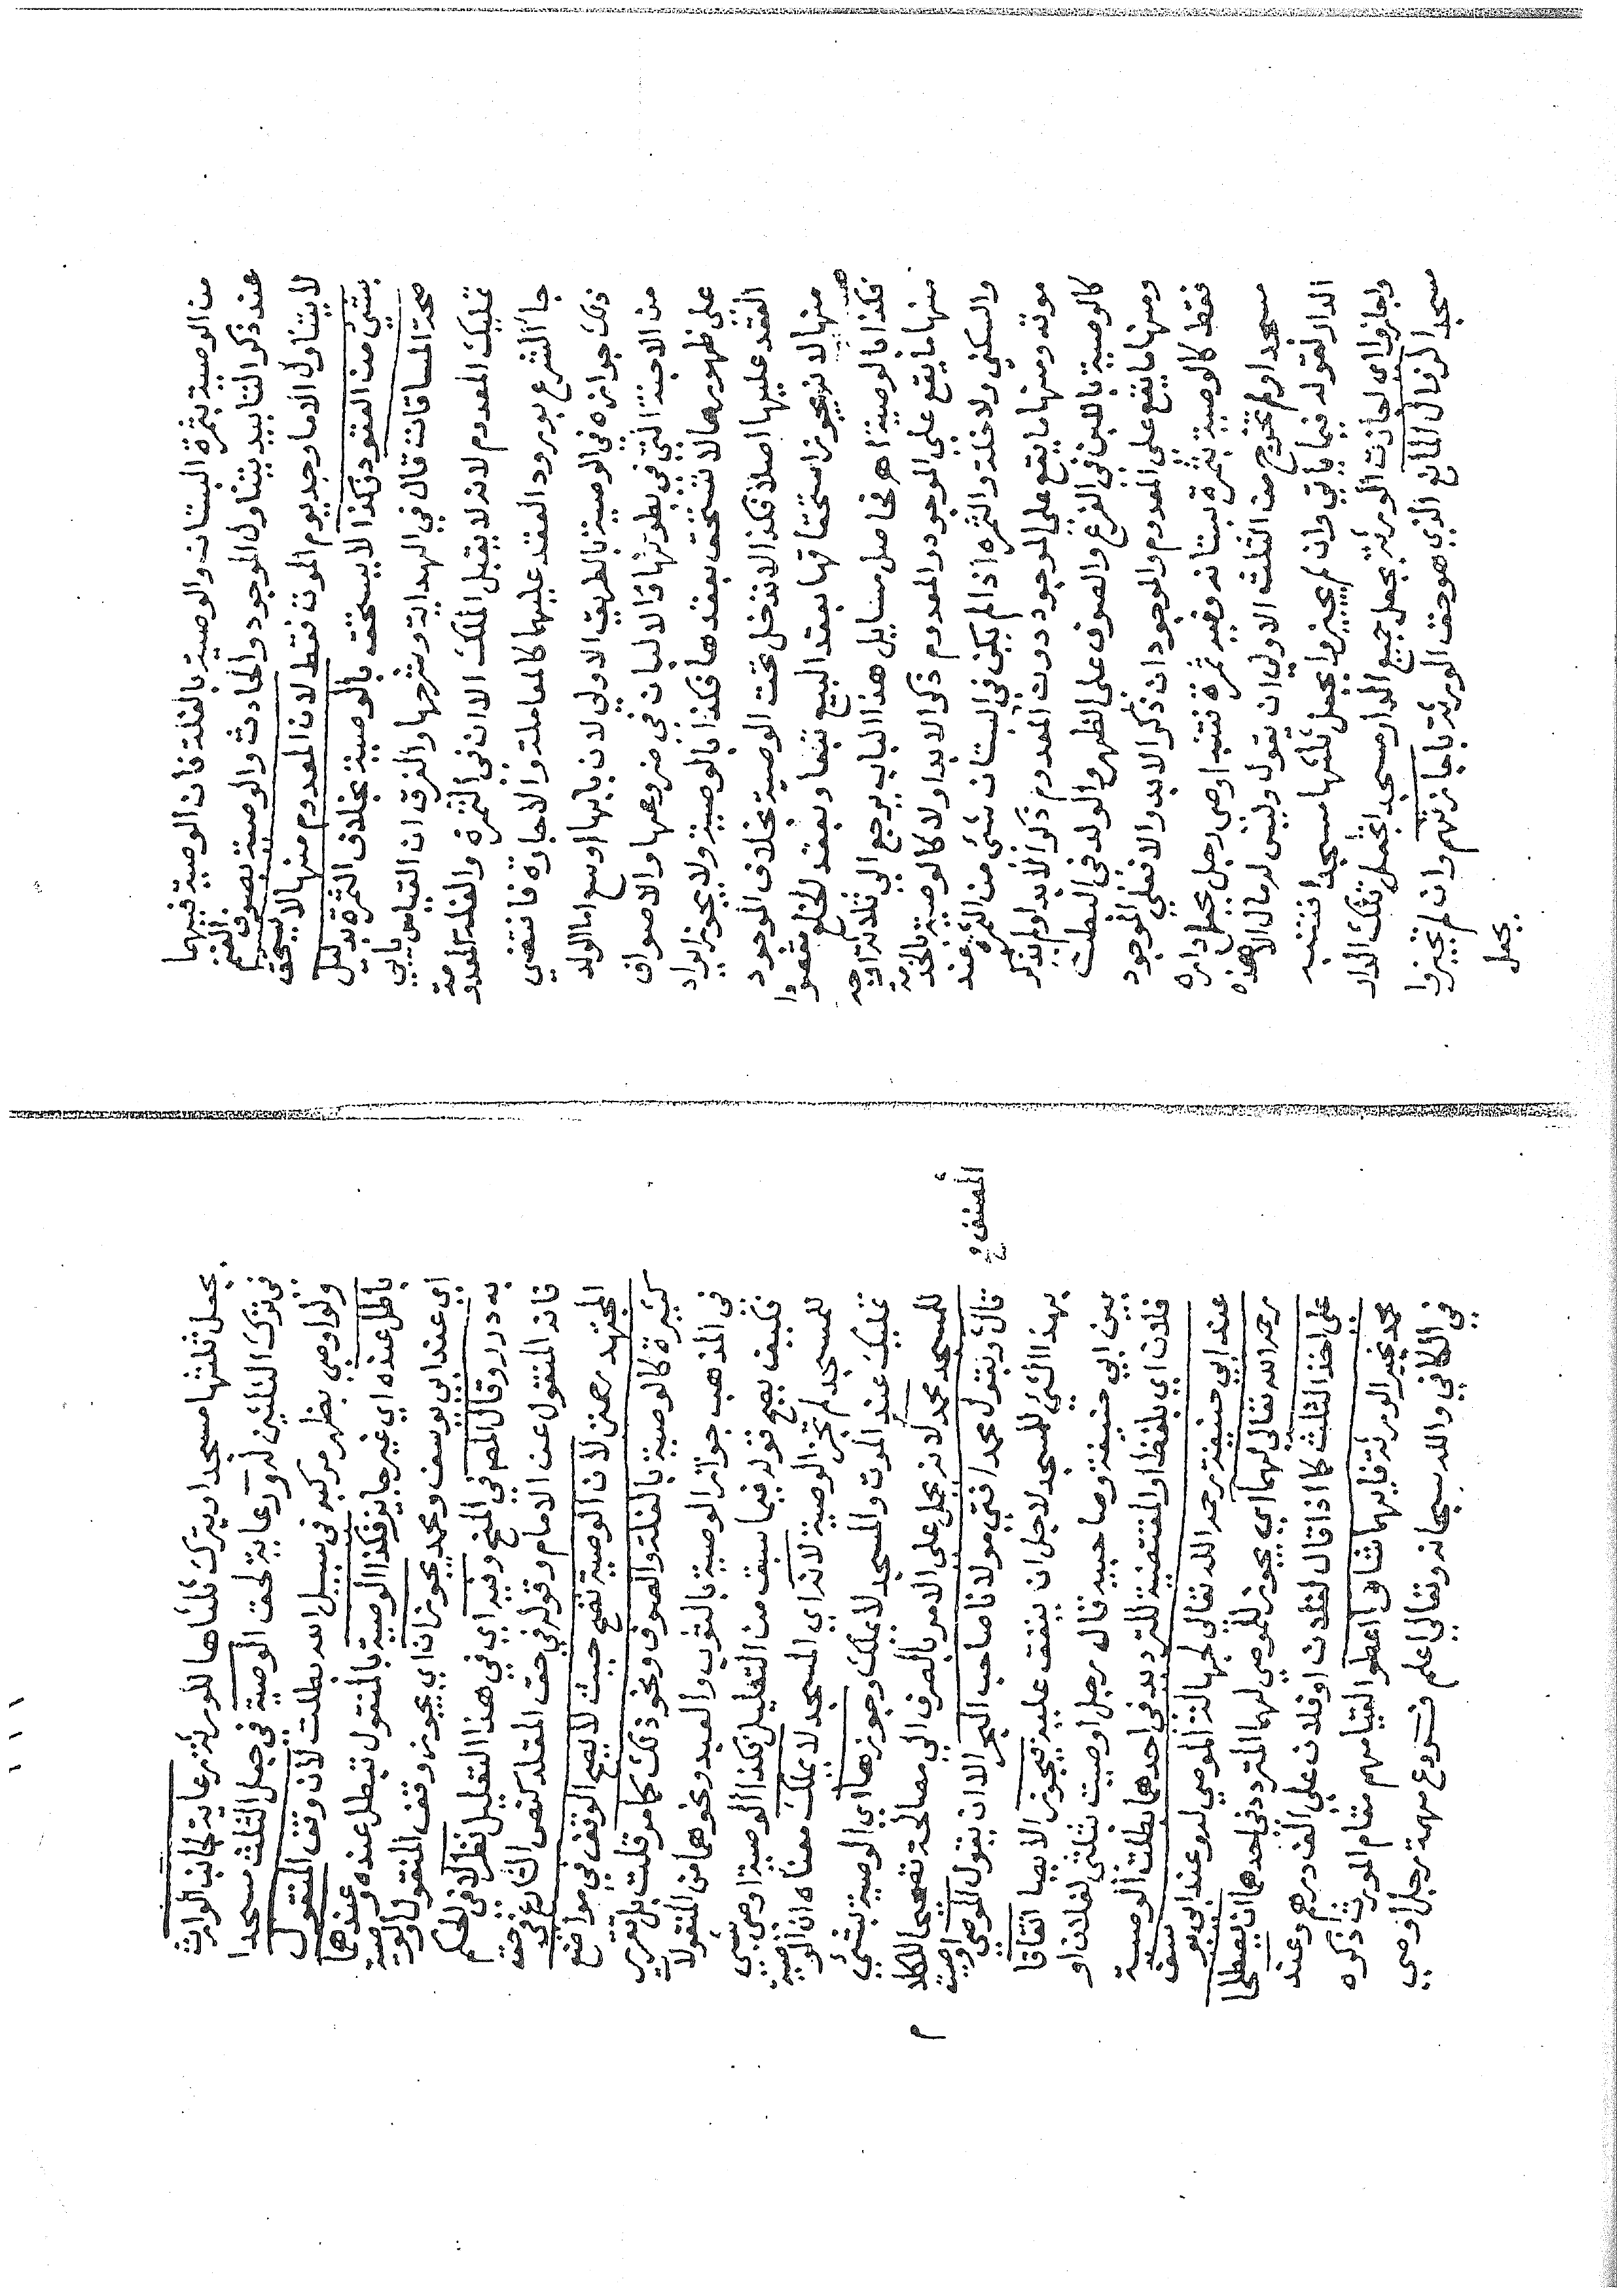 من الوصية بثمرة البستان والوصية بالغلة فان الوصية فيهما
عند ذكر التأبيد يتناول الموجود والحادث والوصية بصوف الغنم
لا يتناول الا ما وجد يوم الموت فقط لان المعدوم منها لا يستحق
بشئ من العقود فكذا لا يستحق بالوصية بخلاف الثمرة بدليل
صحة المساقاة قال في الهداية وشرحها والفرق ان القياس يابي
تمليك المعدوم لانه لا يقبل الملك الا ان في الثمرة والغلة المعدومة
جاء الشرع بورود العقد عليها كالمعاملة والاجارة فاقتضي
ذلك جوازه في الوصية بالطريق الاولي لان بابها اوسع اما الولد
من الاجنة التي في بطونها والالبان في ضروعها والاصواف
علي ظهورها لا تستحق بعقدها فكذا بالوصية ولا يجوز ايراد
العقد عليها اصلا فكذا لا تدخل تحت الوصية بخلاف الموجود
منها لانه يجوز استحقاقها بعقد البيع تبعا وبعقد الخلع مقصودا
فكذا بالوصية اهـ فحاصل مسايل هذا الباب يرجع الي ثلاثة اوجه
منها ما يقع علي الموجود والمعدوم ذكر الابد اولا كالوصية بالخدمة
والسكني والغلة والثمره اذا لم يكن في البستان شئ من الثمرة عند
موته ومنها ما يقع علي الموجود دون المعدوم ذكر الابد اولم يذكر
كالوصية باللبن في الضرع والصوف علي الظهر والولد في البطن
ومنها ما يقع علي المعدوم والموجود ان ذكر الابد والا فعلي الموجود
فقط كالوصية بثمرة بستانه وفيه ثمرة فتنبه اوصي رجل بجعل داره
مسجدا ولم تخرج من الثلث الاولي ان يقول وليس له مال الا هذه
الدار لقوله فيما ياتي وان لم يجيزوا يجعل ثلثها مسجدا فتنبه
واجازوا اي اجازت الورثة بجعل جميع الدار مسجدا تجعل تلك الدار
مسجدا لزوال المانع الذي هو حق الورثة باجازتهم وان لم تجيزوا
يجعل
يجعل ثلثها مسجدا ويترك ثلثاها للورثة رعاية لجانب الوارث
في ترك الثلثين له ورعاية لحق الوصية في جعل الثلث مسجدا
ولو اوصي بظهر مركبه في سبيل الله بطلت لان وقف المنقول
باطل عنده اي غير جايز فكذا الوصية بالمنقول تبطل عنده وعندهما
اي عند ابي يوسف ومحمد يجوزان اي يجوز وقف المنقول والوصية
به درر وقال المص في المنح وفيه اي في هذا التعليل نظر لا في الحكم
فانه المنقول عن الامام وقوله في حق المقلد كنص الشارع في حق
المجتهد رمز لان الوصية تصح حيث لا يصح الوقف في مواضع
كثيرة كالوصية بالغلة والصوف ونحو ذلك كما مر قلت بل تقرير
في المذهب جواز الوصية بالثوب والعبد ونحوهما من المنقولات
فكيف يصح قوله فيما سبق من التعليل فكذا الوصية اوصي بشئ
للمسجد لم تجز الوصية لانه اي المسجد لا يملك معناه ان الوصية
تمليك عند الموت والمسجد لا يملك وجوزها اي الوصية بشئ
للمسجد محمد لانه يحمل علي الامر بالصرف الي مصالحه تصحيحا للكلام
قال وبقول محمد افتي مولانا صاحب البحر الا ان يقول الموصي اوصيت
المصنف
بهذا الشئ للمسجد لاجل ان ينفق عليه فيجوز الايصا اتفاقا
بين ابي حنيفة وصاحبيه قال رجل اوصيت بثلثي لفلان او
فلان اي بلفظ او المقتضية للترديد في احدهما بطلت الوصية
عند ابي حنيفة رحمه الله تعالي لجهالة الموصي له وعند ابي يوسف
رحمه الله تعالي لهما اي يجوز للموصي لهما المتردد في احدهما ان يصطلحا
علي اخذ الثلث كما اذا قال لفلان او فلان علي الف درهم وعند
محمد يخير الورثة فايهما شاوا اعطوا لقيامهم مقام المورث ذكره
في الكافي والله سبحانه وتعالي اعلم فروع مهمة رجل اوصي